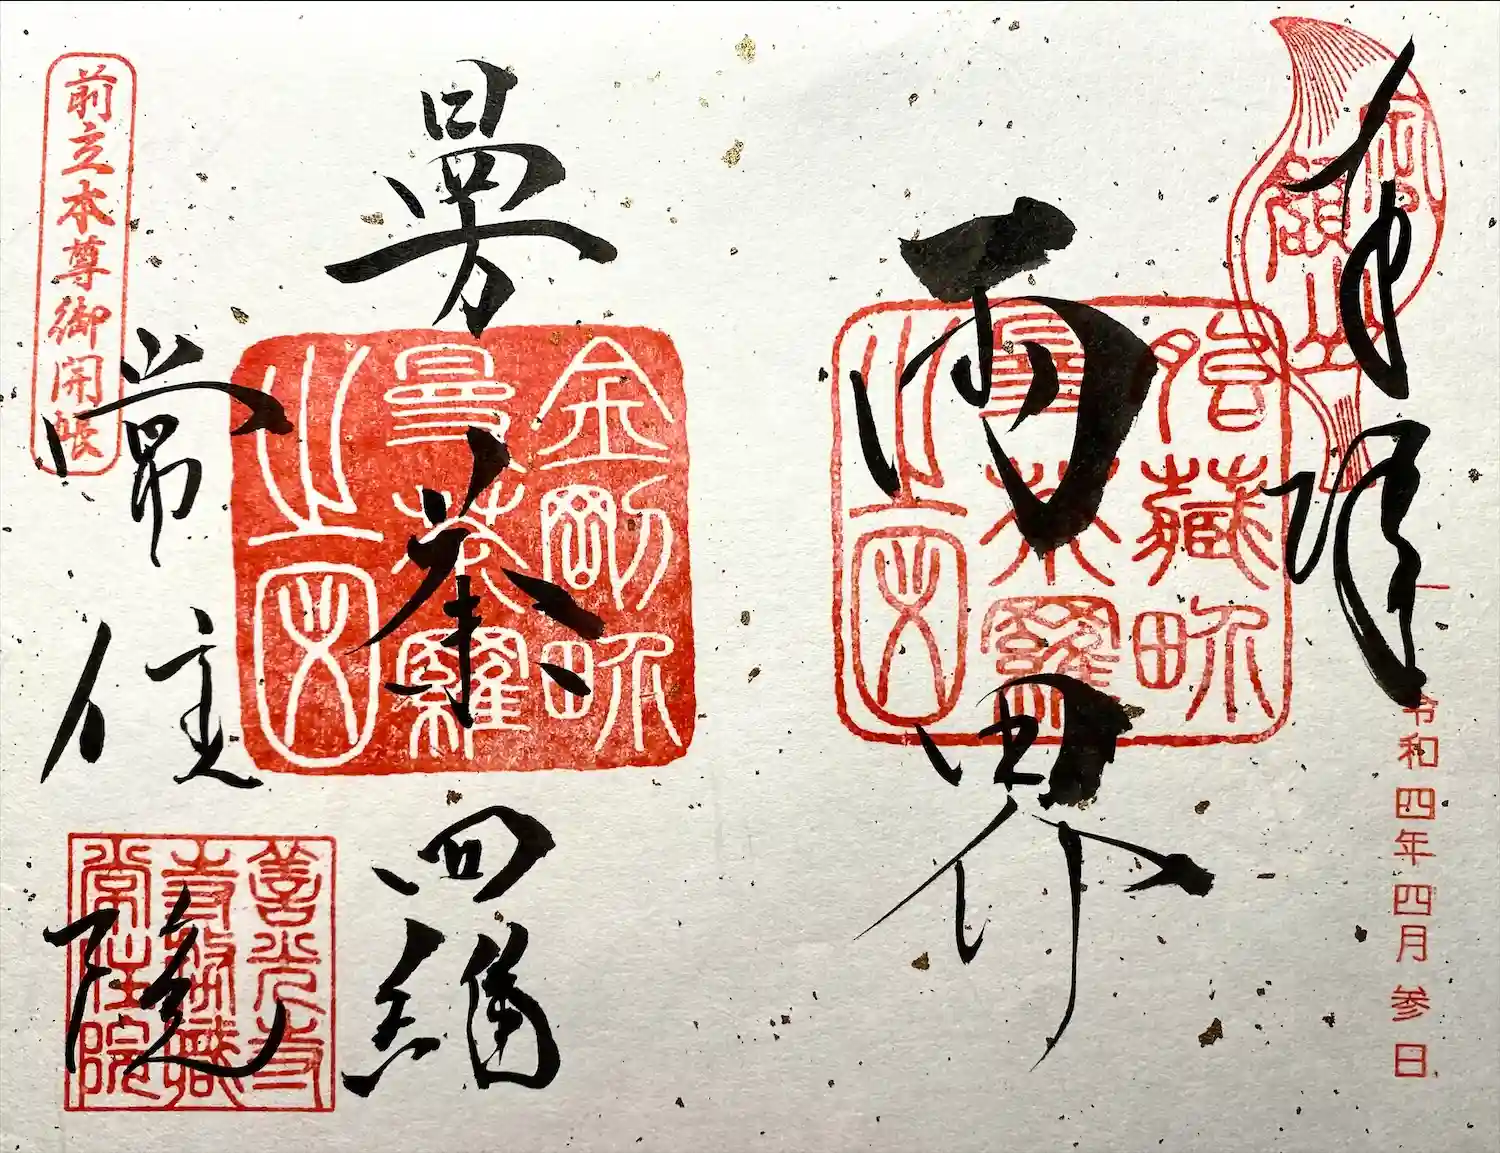 奉拝
定額山
令和四年四月参日
両界
胎蔵界
曼荼羅
之宝
曼荼羅
金剛界
曼荼羅
之宝
前立本尊御開帳
常住院
善光寺
常住院